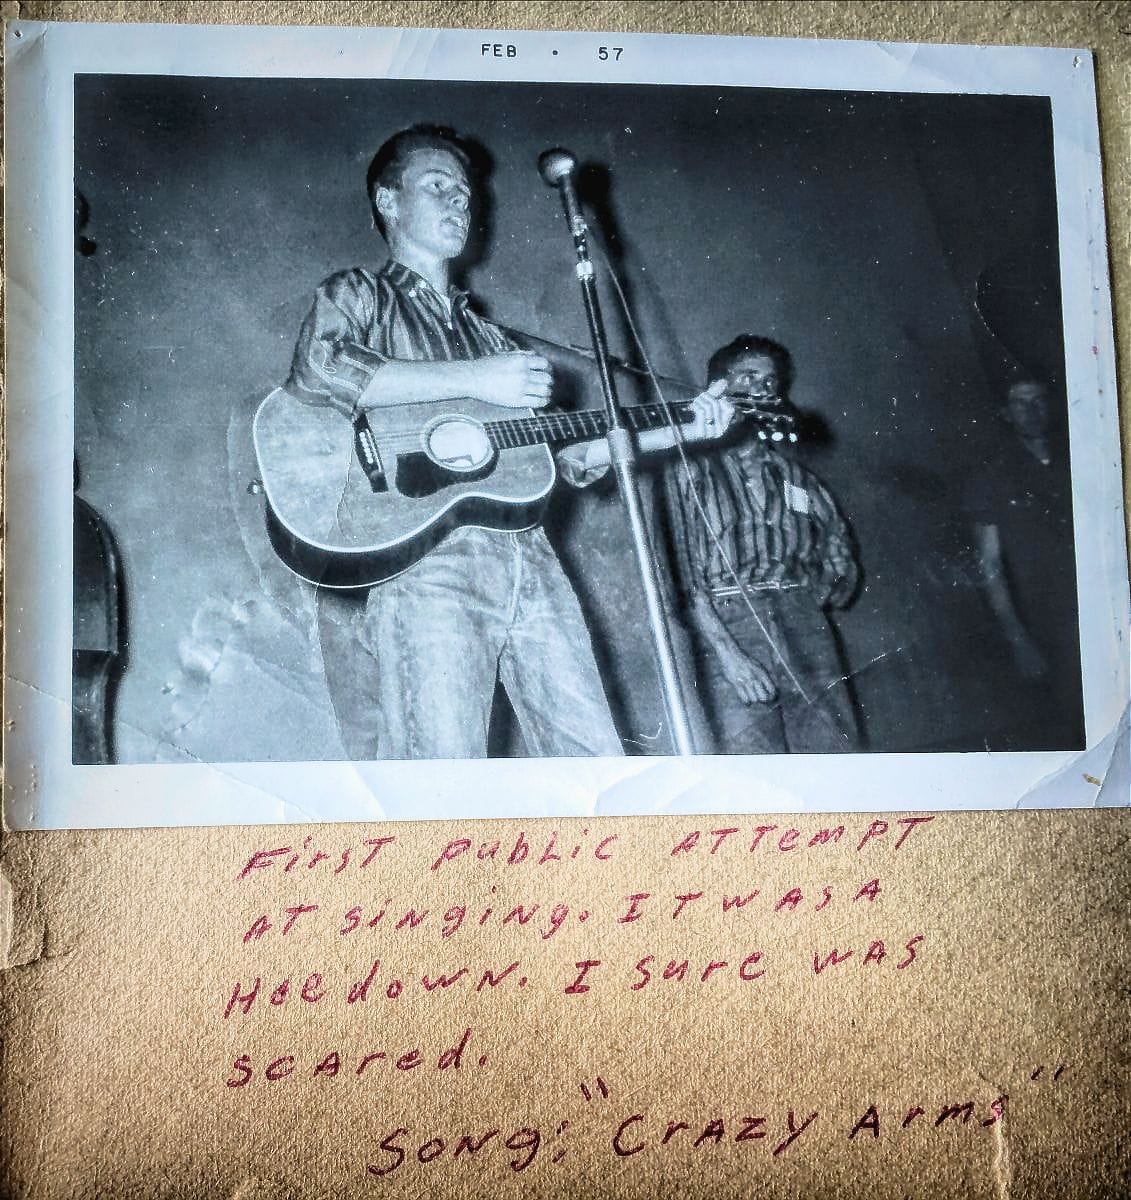 FEB • 57
First public ATTempT
AT singing. IT was A
Hoedown. I sure was
scared.
Song: "Crazy Arms"